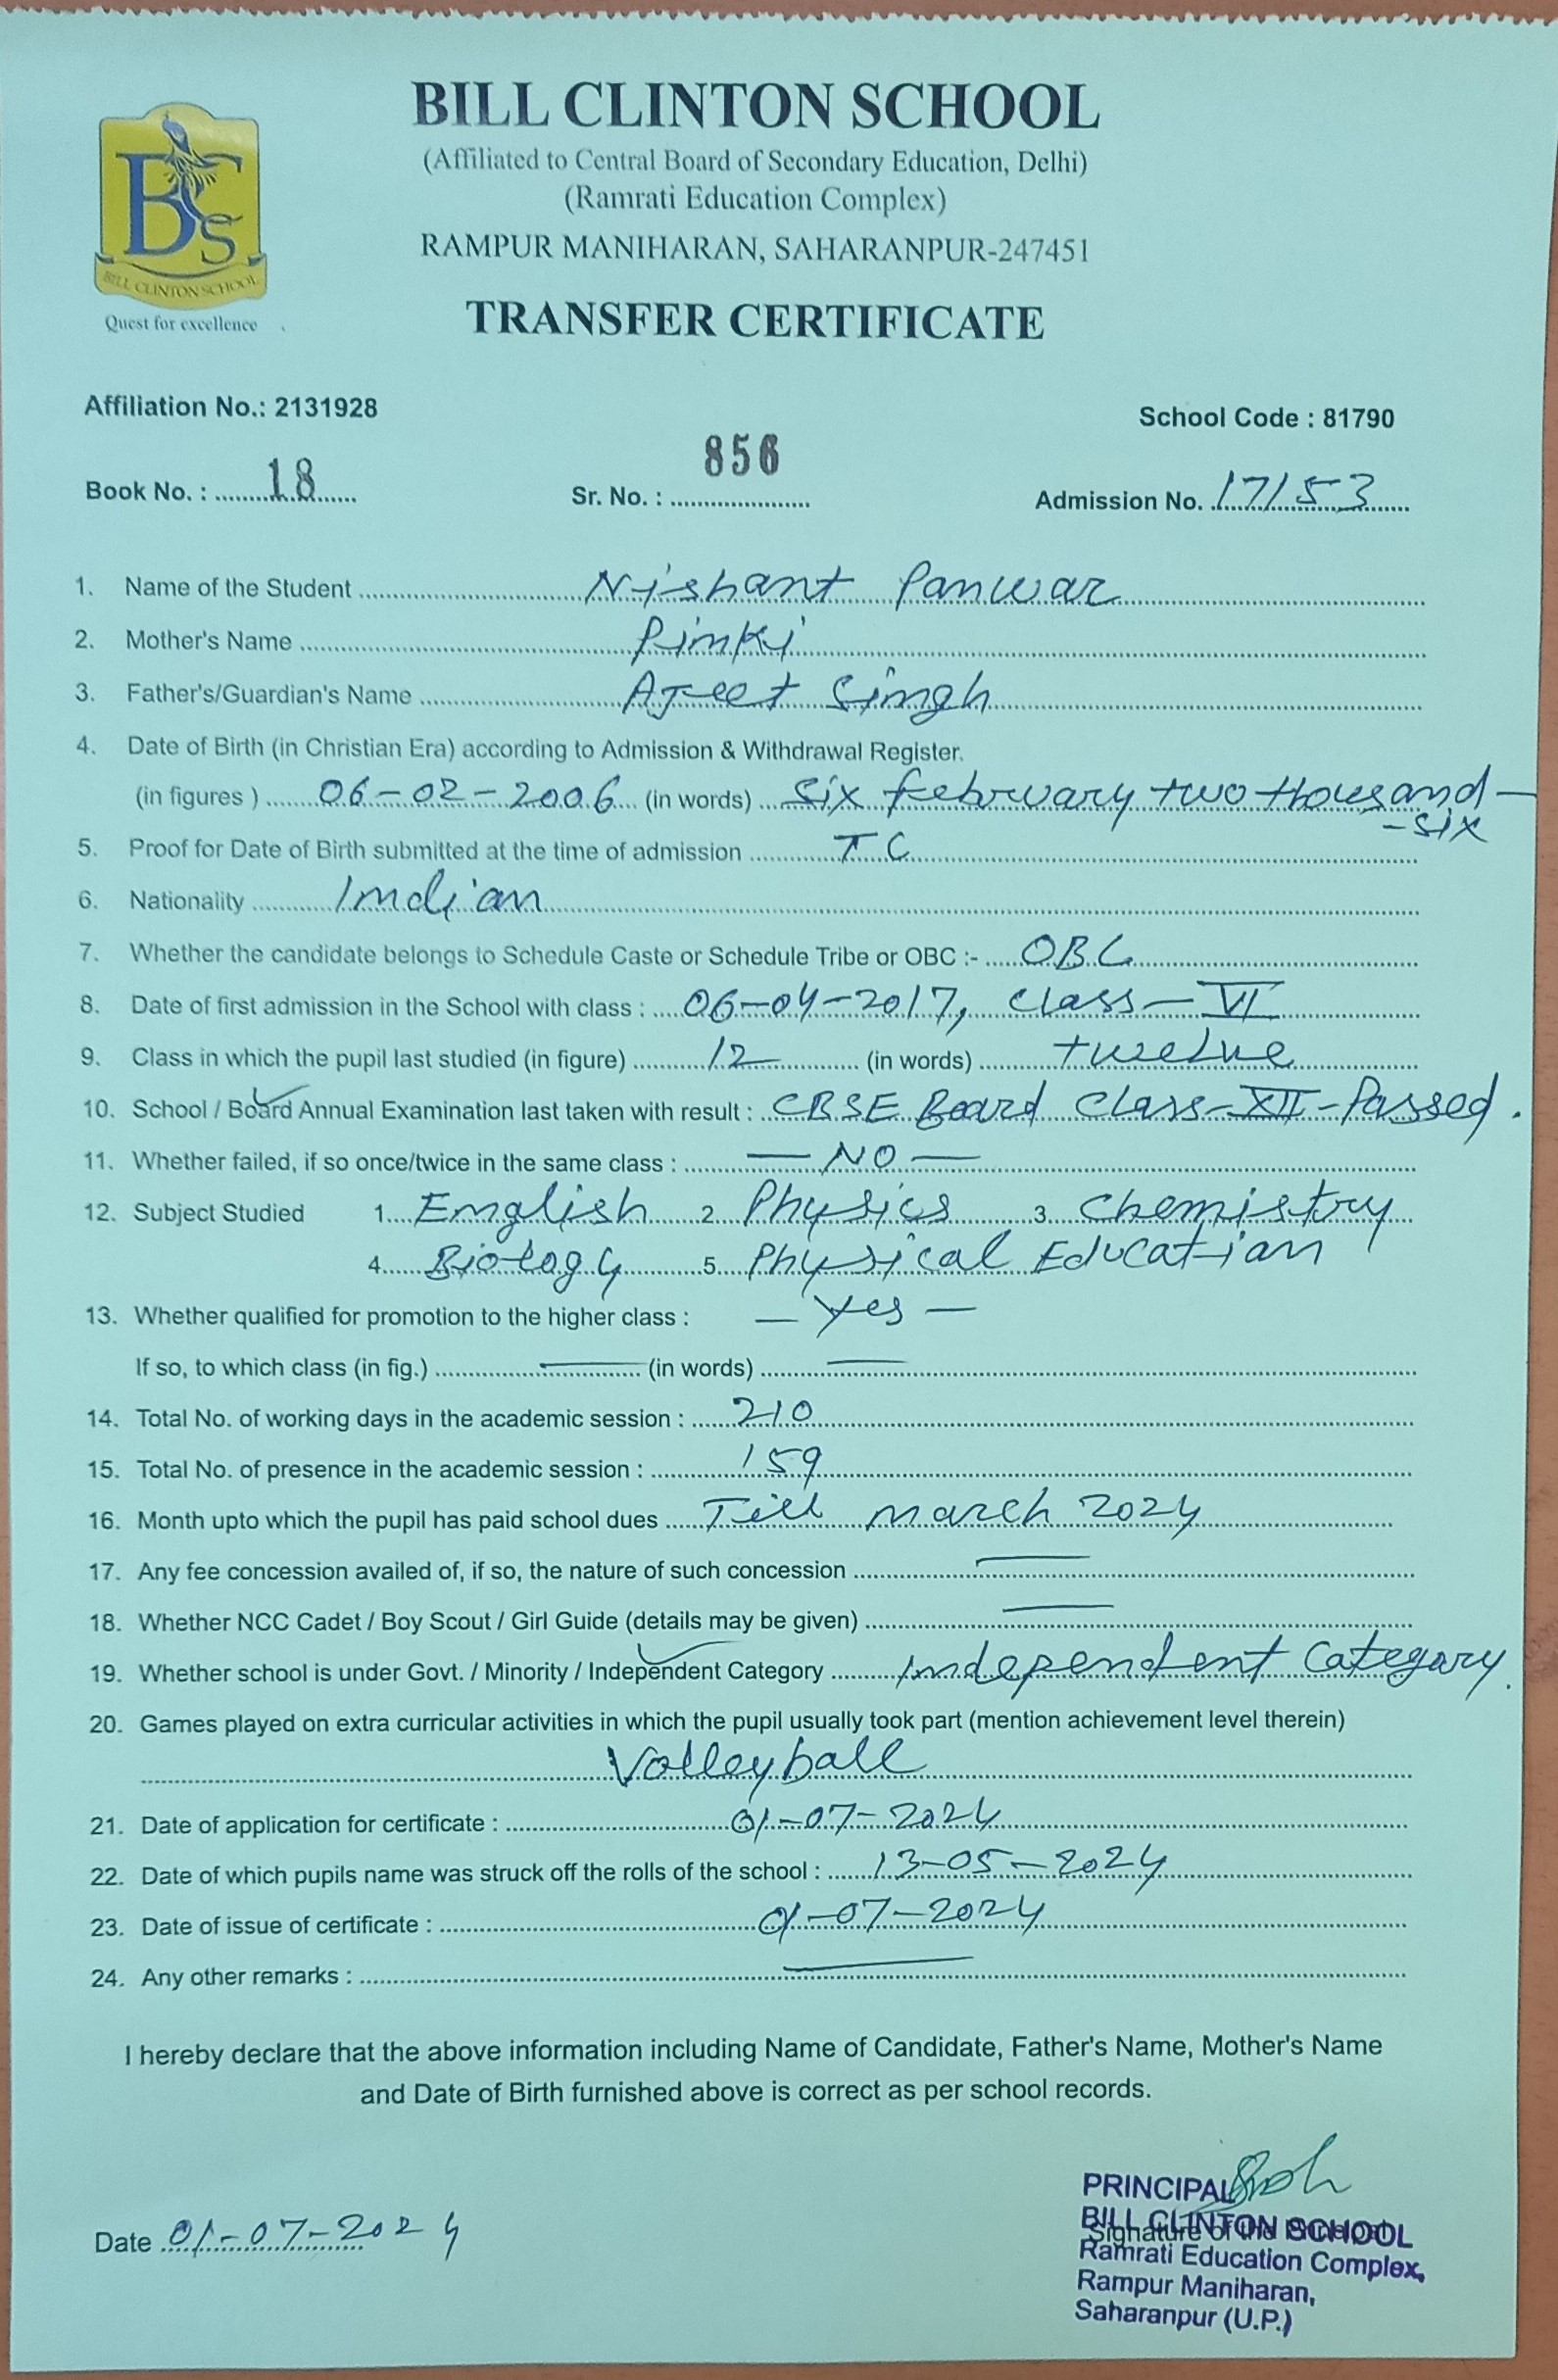 BILL CLINTON SCHOOL
(Affiliated to Central Board of Secondary Education, Delhi)
(Ramrati Education Complex)
RAMPUR MANIHARAN, SAHARANPUR-247451
BCS
BILL CLINTON SCHOOL
Quest for excellence
TRANSFER CERTIFICATE
Affiliation No.: 2131928
School Code : 81790
Book No. : 18 Sr. No. : 856 Admission No. 17153
1. Name of the Student Nishant Panwar
2. Mother's Name Pinki
3. Father's/Guardian's Name Ajeet Singh
4. Date of Birth (in Christian Era) according to Admission & Withdrawal Register.
(in figures ) 06-02-2006 (in words) Six february two thousand-
-six
5. Proof for Date of Birth submitted at the time of admission T C
6. Nationality Indian
7. Whether the candidate belongs to Schedule Caste or Schedule Tribe or OBC :- OBC
8. Date of first admission in the School with class : 06-04-2017, class-VI
9. Class in which the pupil last studied (in figure) 12 (in words) twelve
10. School / Board Annual Examination last taken with result : CBSE Board Class-XII-Passed.
11. Whether failed, if so once/twice in the same class : — NO —
12. Subject Studied 1. English 2. Physics 3. Chemistry
4. Biology 5. Physical Education
13. Whether qualified for promotion to the higher class : — Yes —
If so, to which class (in fig.) — (in words) —
14. Total No. of working days in the academic session : 210
15. Total No. of presence in the academic session : 159
16. Month upto which the pupil has paid school dues Till march 2024
17. Any fee concession availed of, if so, the nature of such concession —
18. Whether NCC Cadet / Boy Scout / Girl Guide (details may be given) —
19. Whether school is under Govt. / Minority / Independent Category Independent Category.
20. Games played on extra curricular activities in which the pupil usually took part (mention achievement level therein)
Volleyball
21. Date of application for certificate : 01-07-2024
22. Date of which pupils name was struck off the rolls of the school : 13-05-2024
23. Date of issue of certificate : 01-07-2024
24. Any other remarks : —
I hereby declare that the above information including Name of Candidate, Father's Name, Mother's Name
and Date of Birth furnished above is correct as per school records.
Date 01-07-2024
PRINCIPAL
BILL CLINTON SCHOOL
Signature of the Principal
Ramrati Education Complex,
Rampur Maniharan,
Saharanpur (U.P.)